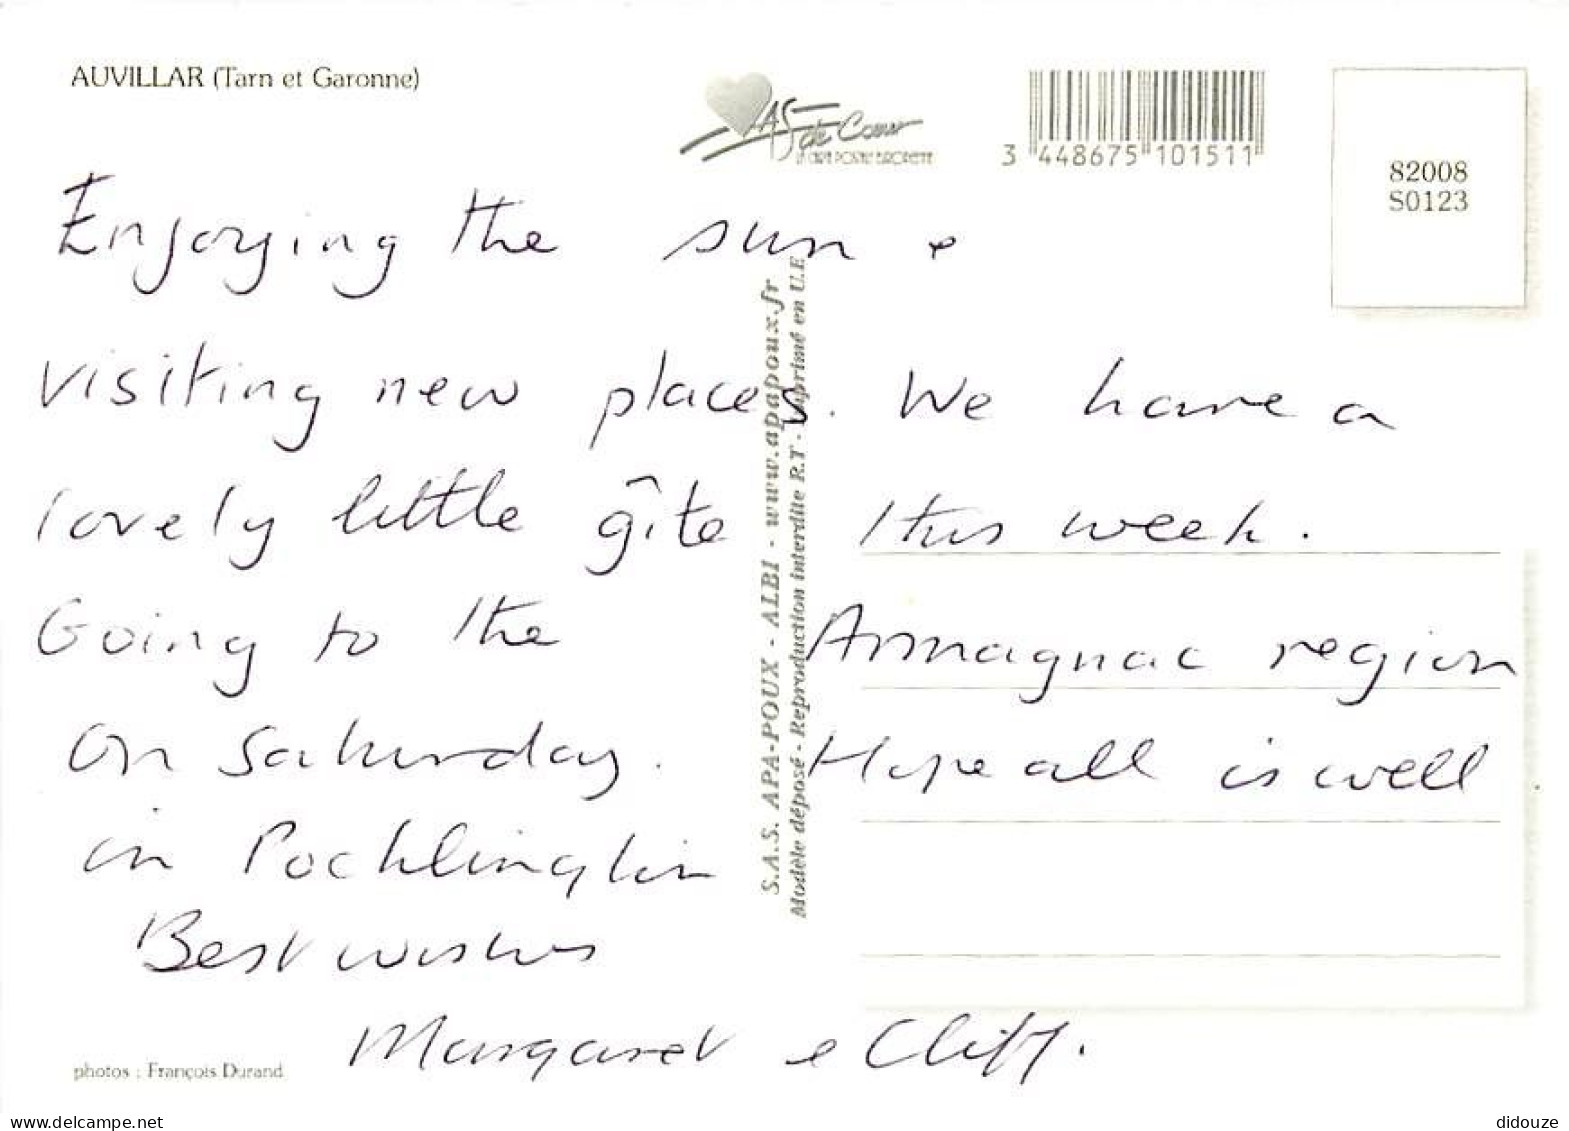 AUVILLAR (Tarn et Garonne)
AS de Cœur
LA CARTE POSTALE EUROPEENNE
3 448675 101511
82008
S0123
Enjoying the sun &
visiting new places. We have a
lovely little gîte this week.
Going to the Armagnac region
on Saturday. Hope all is well
in Pocklington
Best wishes
Margaret & Cliff.
S.A.S. APA-POUX - ALBI - www.apapoux.fr
Modèle déposé - Reproduction interdite R.T - Imprimé en U.E
photos : François Durand
delcampe.net
didouze